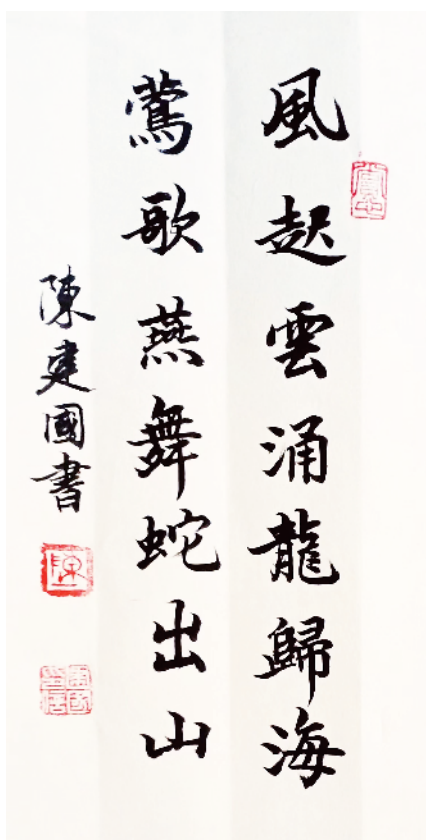 風起雲涌龍歸海
鶯歌燕舞蛇出山
陳建國書